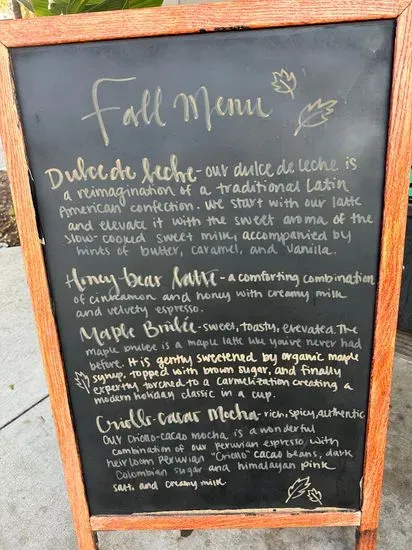 Fall Menu
Dulce de leche - our dulce de leche is
a reimagination of a traditional Latin
American confection. We start with our latte
and elevate it with the sweet aroma of the
slow-cooked sweet milk, accompanied by
hints of butter, caramel, and vanilla.
Honey bear latte - a comforting combination
of cinnamon and honey with creamy milk
and velvety espresso.
Maple Brûlée - sweet, toasty, elevated. The
maple brulee is a maple latte like you've never had
before. It is gently sweetened by organic maple
syrup, topped with brown sugar, and finally
expertly torched to a carmelization creating a
modern holiday classic in a cup.
Criollo-Cacao Mocha - rich, spicy, authentic
our criollo-cacao mocha is a wonderful
combination of our peruvian espresso with
heirloom peruvian "Criollo" cacao beans, dark
Colombian sugar and himalayan pink
salt. and creamy milk